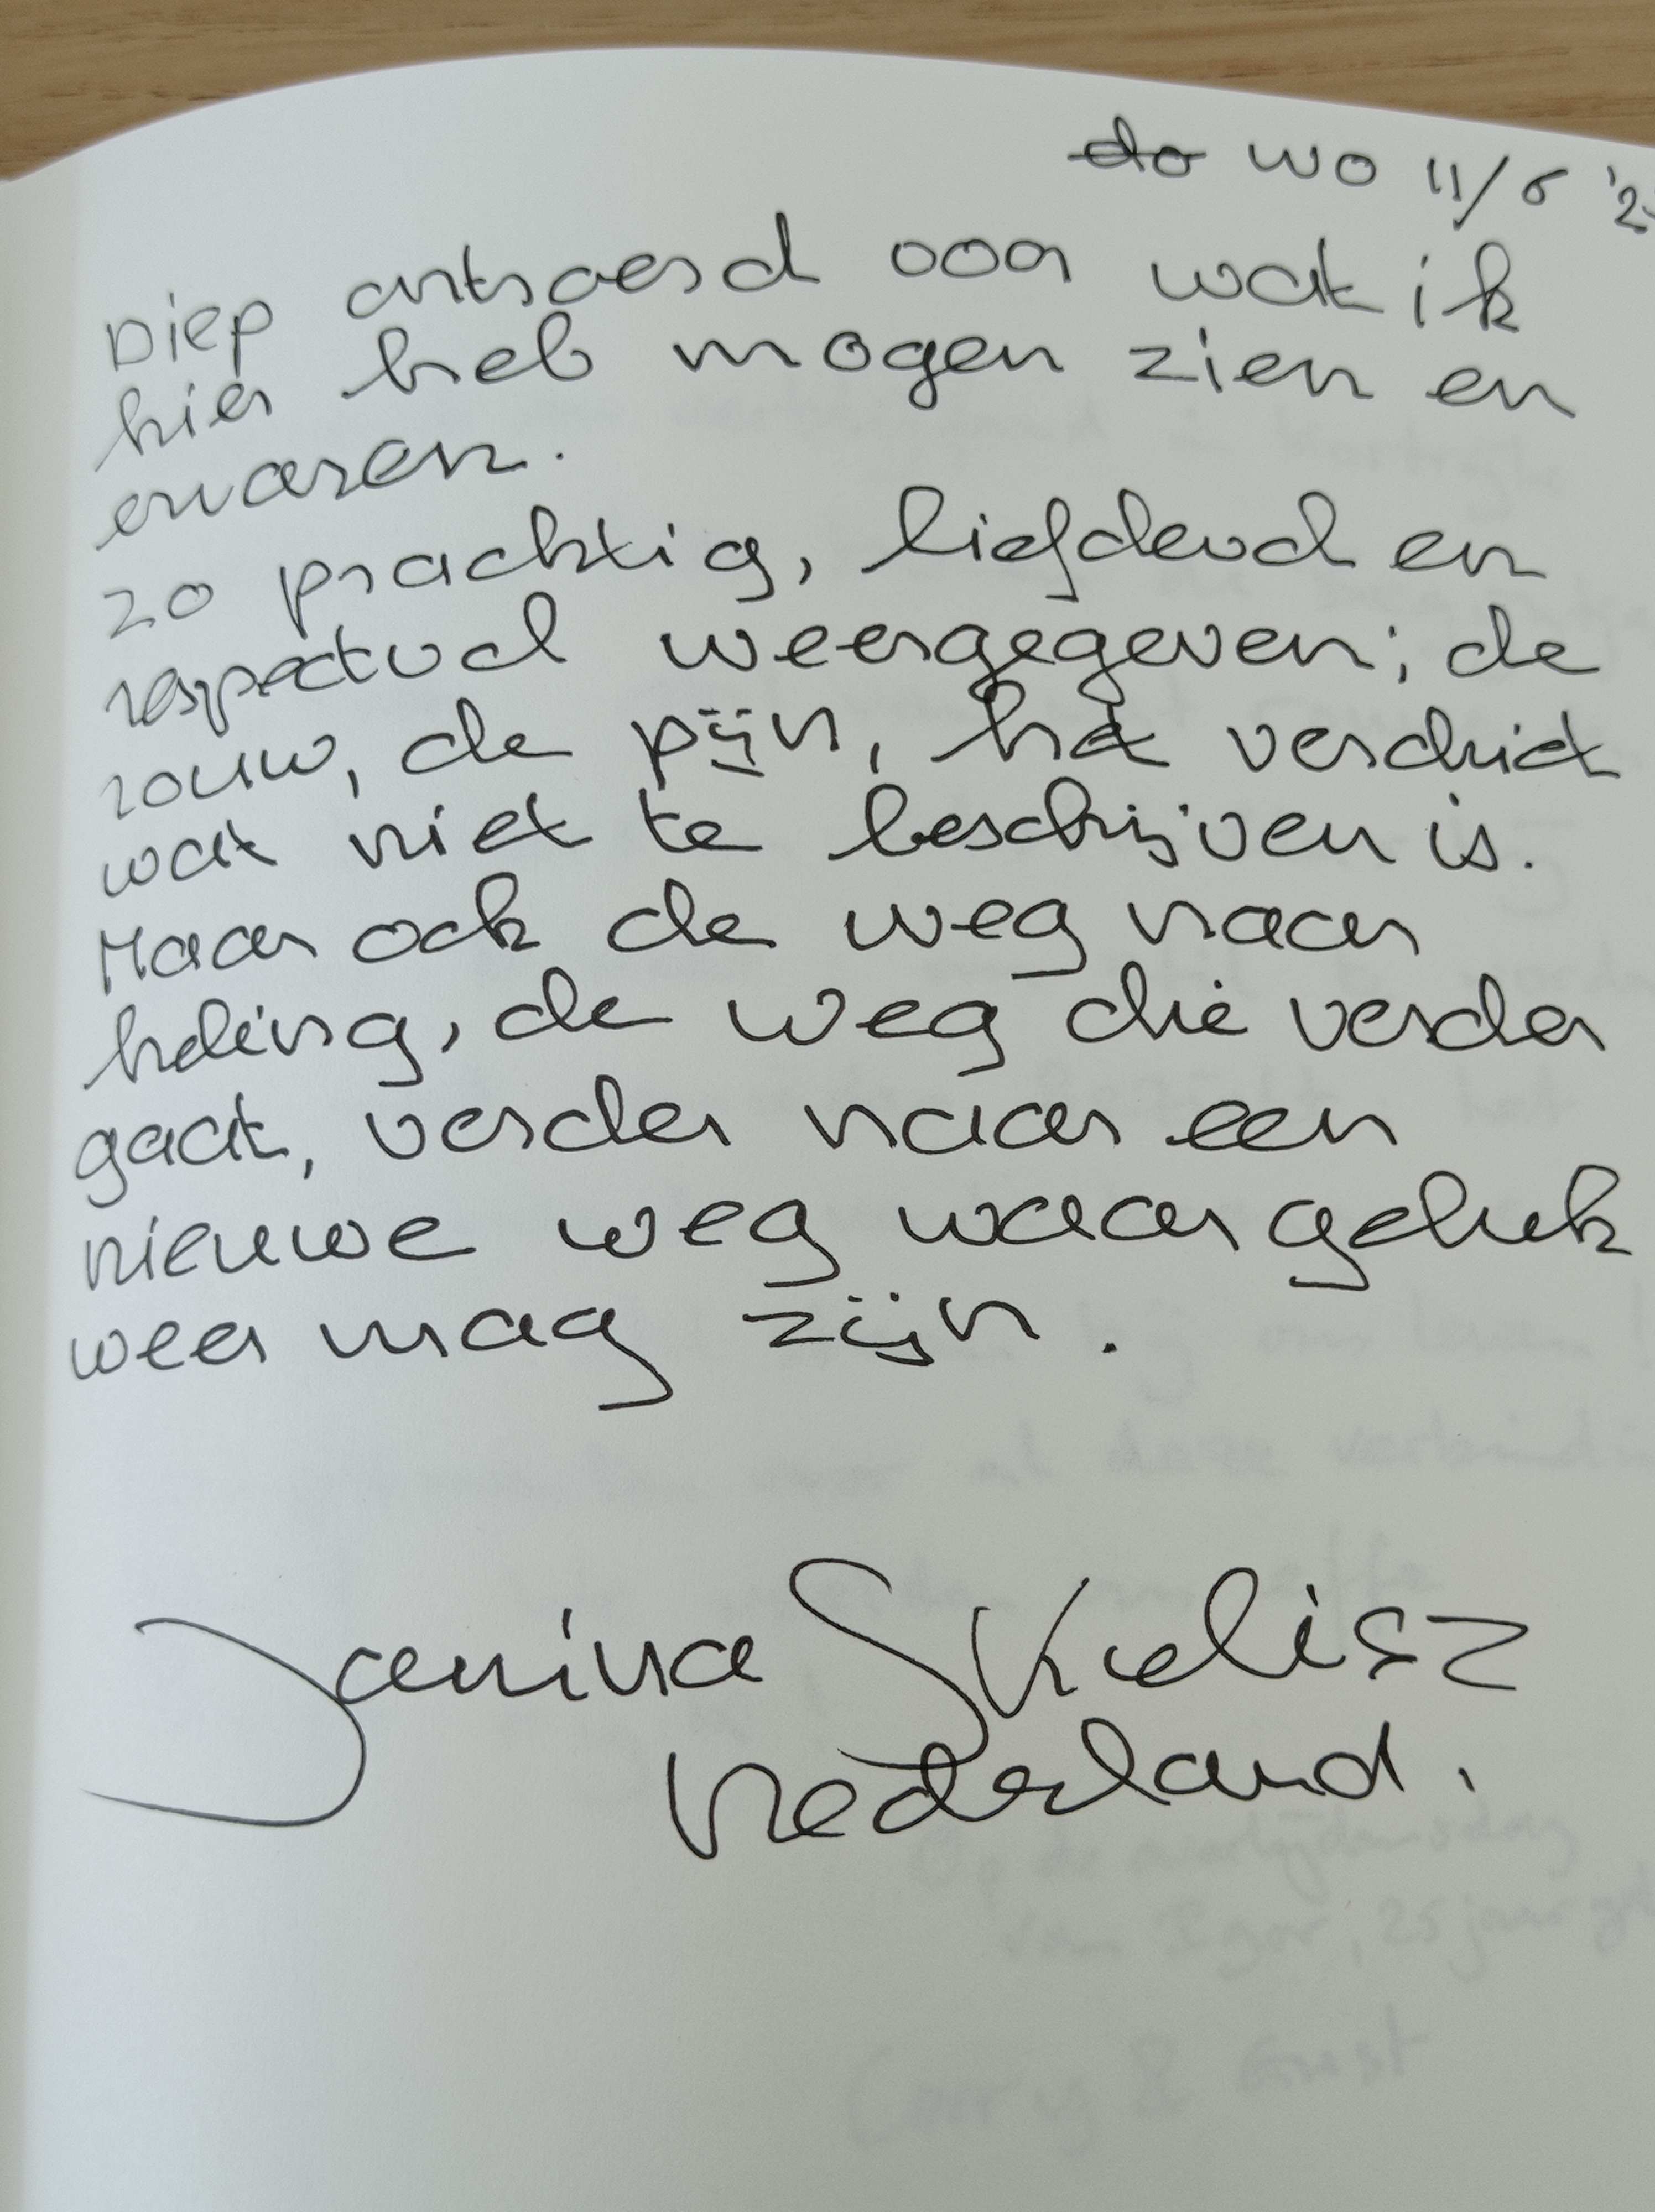 do wo 11/6 '2
Diep ontroerd door wat ik
hier heb mogen zien en
ervaren.
zo prachtig, liefdevol en
respectvol weergegeven; de
rouw, de pijn, het verdriet
wat niet te beschrijven is.
Maar ook de weg naar
heling, de weg die verder
gaat, verder naar een
nieuwe weg waar geluk
weer mag zijn.
Janina SKalisz
Nederland.
Op de overlijdensdag
van Igor, 25 jaar